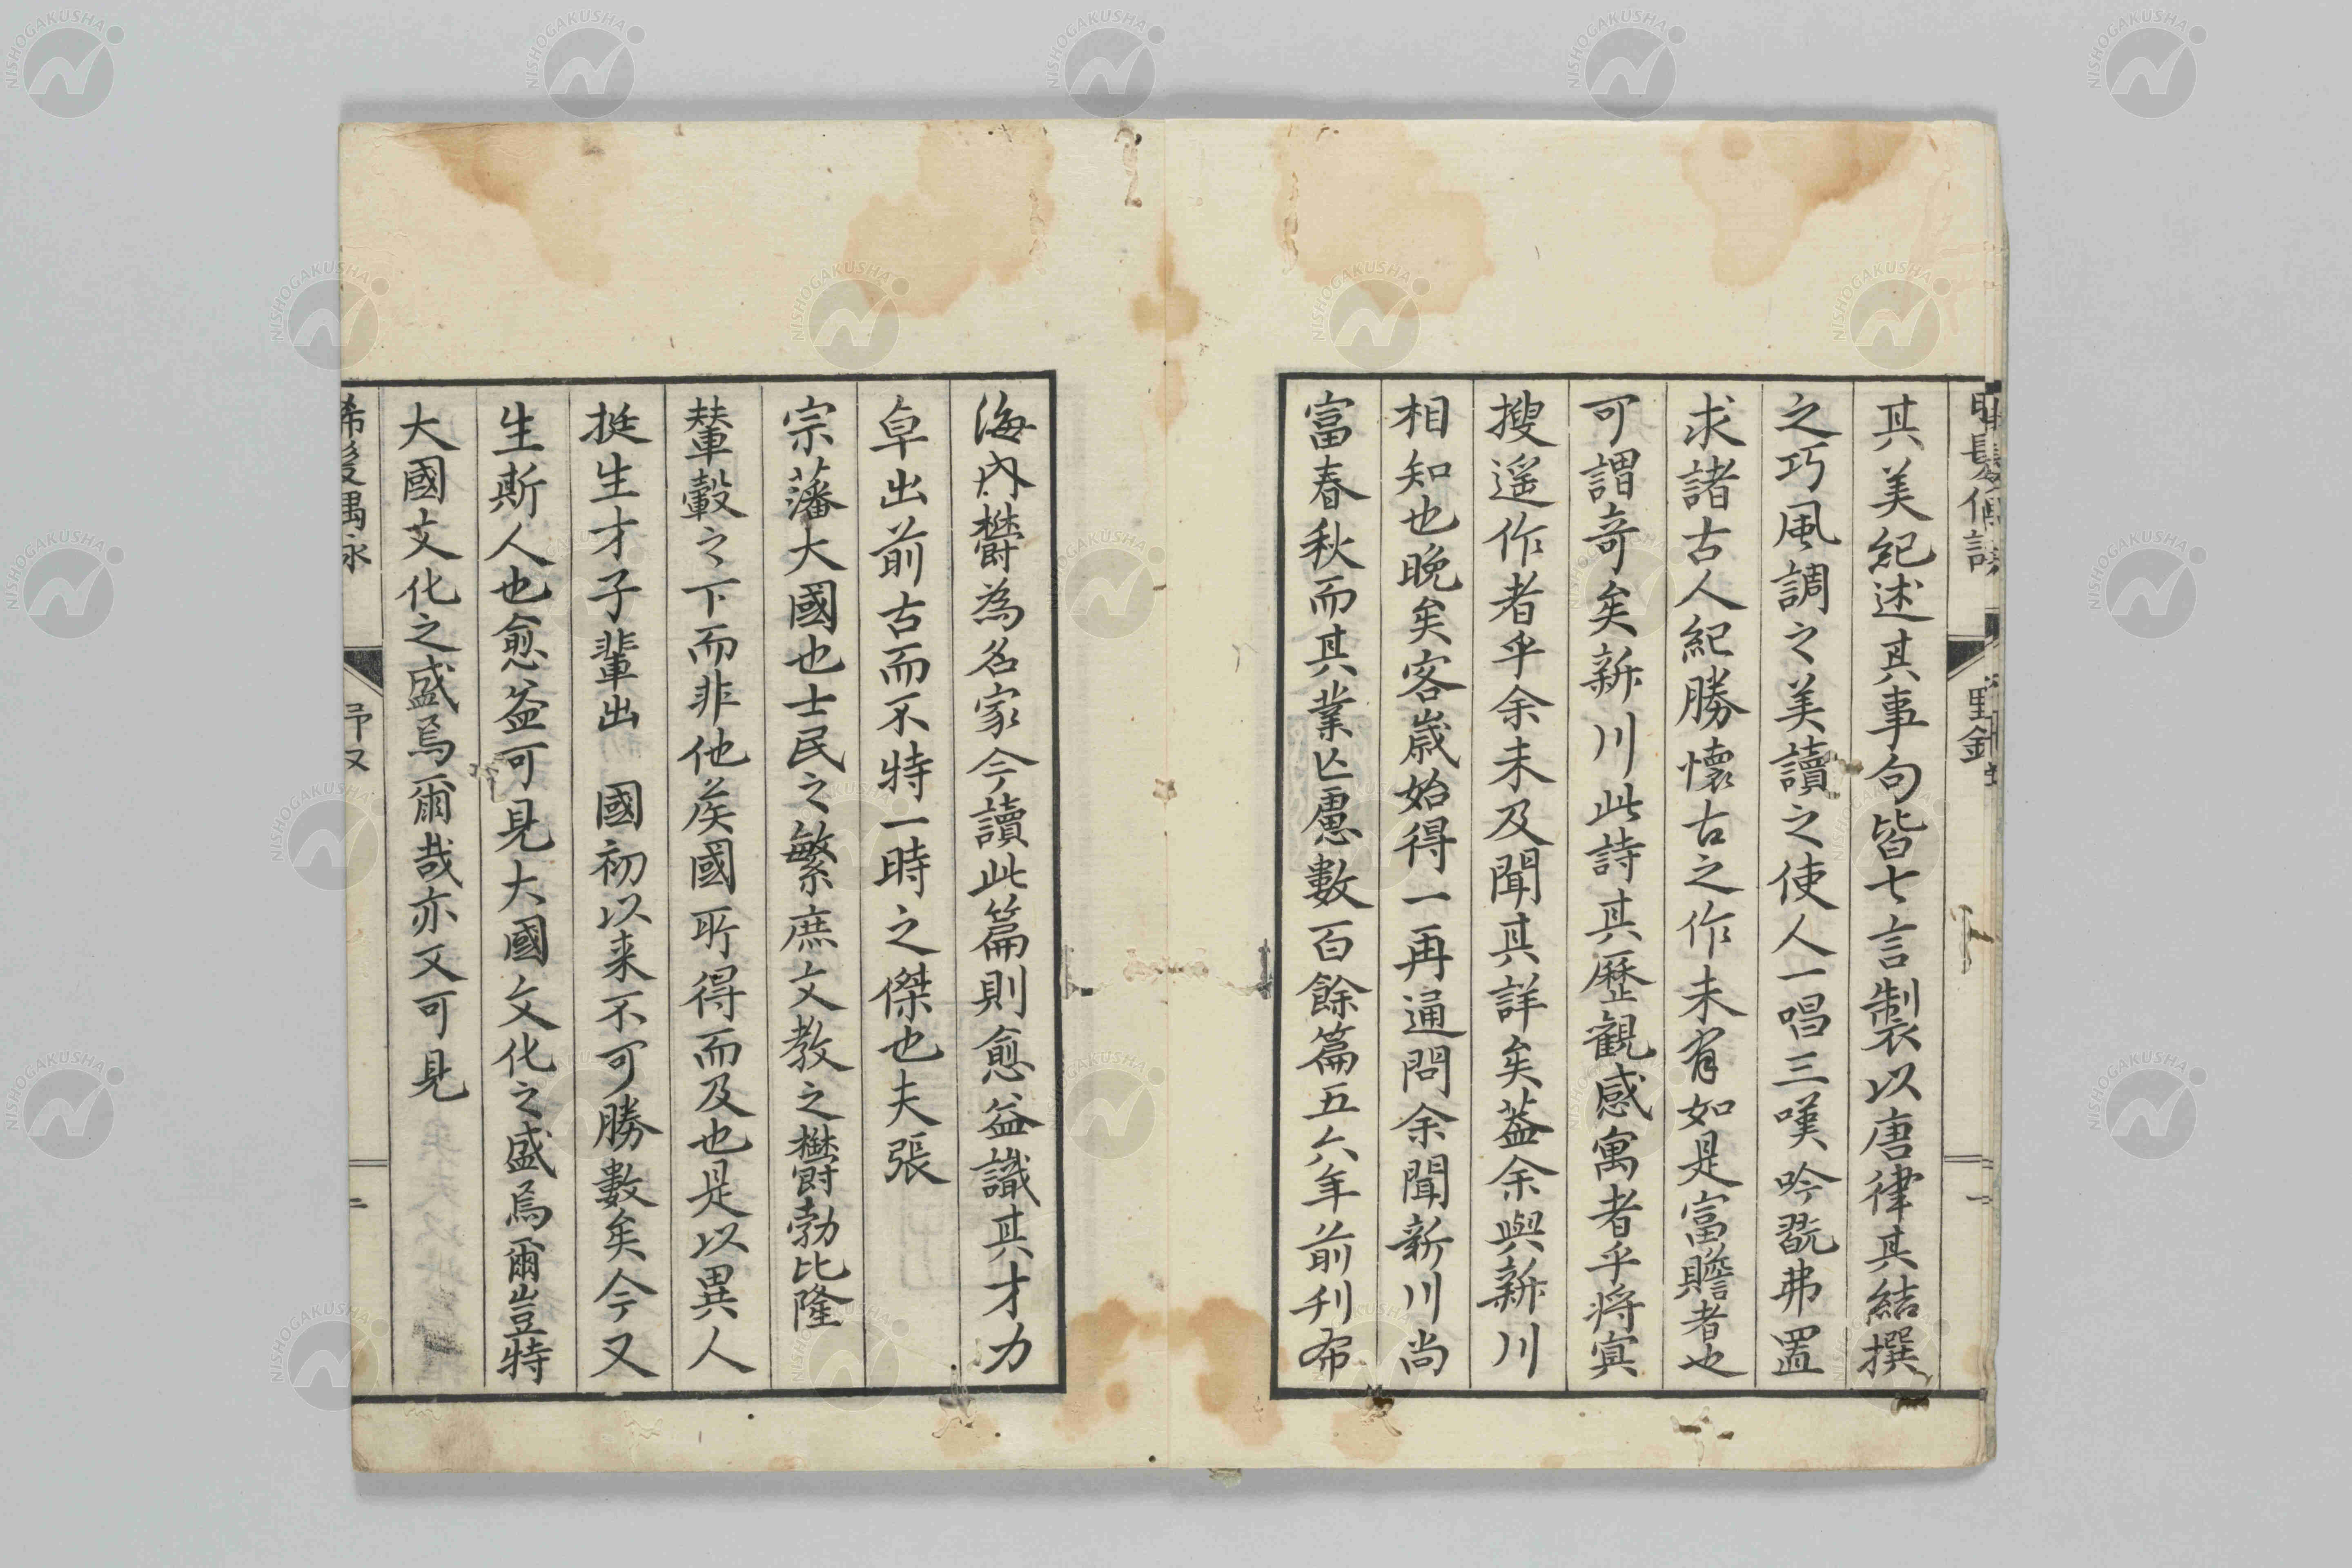 其美紀述其事句皆七言製以唐律其結撰
之巧風調之美讀之使人一唱三嘆吟翫弗置
求諸古人紀勝懷古之作未有如是富贍者也
可謂奇矣新川此詩其歷觀感寓者乎將冥
搜遥作者乎余未及聞其詳矣葢余與新川
相知也晚矣客歲始得一再通問余聞新川尚
富春秋而其業亾慮數百餘篇五六年前刋布
海內欝為名家今讀此篇則愈益識其才力
卓出前古而不特一時之傑也夫張
宗藩大國也士民之繁庶文教之欝勃比隆
輦轂之下而非他矦國所得而及也是以異人
挺生才子輩出 國初以来不可勝數矣今又
生斯人也愈益可見大國文化之盛焉爾豈特
大國文化之盛焉爾哉亦又可見
二
NISHOGAKUSHA